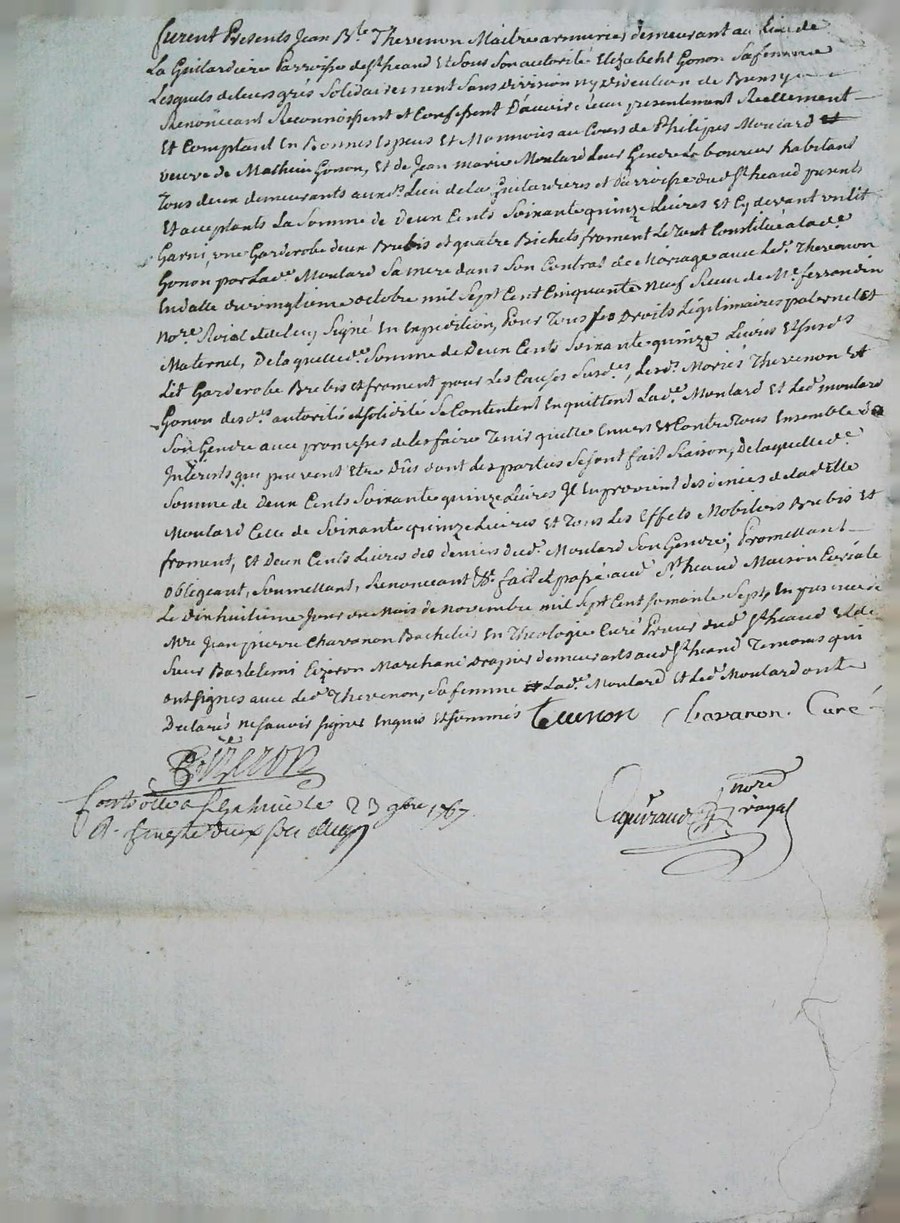 furent Presents Jean Bte Thevenon Maitre armurier demeurant au Lieu de
La Guilardiere Parroisse de St heand Et Sous Son autorité Elizabeht Gonon Sa femme
Lesquels de leurs grés Solidairement Sans division ny discution de Biens y
Renonçant Reconnoissent et Confessent D'avoir reçeu presentement Reellement
Et Comptant En Bonnes Especes Et Monnoies au Cours de Philipes Moulard
veuve de Mathieu Gonon, Et de Jean marie Moulard Leur Gendre Laboureur habitant
Tous deux demeurants aud. Lieu de La Guilardieres et Parroisse dud St heand presents
Et acceptants La Somme de Deux Cents Soixante quinze Livres et Cy devant un lit
Garni, une Garderobe deux Brebis et quatre Bichets froment Le Tout Constitué a lade
Gonon par Lade Moulard Sa mere dans Son Contrat de Mariage avec Led. Thevenon
En datte du vinglieme octobre mil Sept Cent Cinquante Neuf Receu de Me ferrandin
Nore Roial dud lieu Signé En Expedition, Pour Tous ses Droits Légitimaires paternel et
Maternel, De laquelle de Somme de Deux Cents Soixante quinze Livres Et susds
Lit Garderobe Brebis et froment pour les Causes Susdes, Lesds Mariés Thevenon Et
Gonon desdes autorité et solidité Se Contentent En quittent Lade Moulard Et Led. moulard
Son Gendre avec promesses de les faire Tenir quitte Envers Et Contre Tous Ensemble des
Interêts qui peuvent Etre Dûs dont Les parties Se sont fait Raison, De laquelle de
Somme de Deux Cents Soixante quinze Livres Il En provient des deniers de lad elle
Moulard Celle de Soixante quinze Livres Et Tous Les Effets Mobiliers Brebis Et
froment, Et Deux Cents Livres des deniers dud. Moulard Son Gendre; Promettant
obligeant, Soumettant, Renonceant &c. fait et passé aud St heand Maison Curiale
Le dixhuitieme Jour du Mois de novembre mil Sept Cent soixante Sept En presence de
Mre Jean pierre Chavanon Bachelier En Theologie Curé Prieur dud St heand Et de
Sieur Bartelemi Eizeron Marchand Drapier demeurants aud St heand Temoins qui
ont signés avec Led. Thevenon, Sa femme Lade Moulard Et Led. Moulard ont
Declarés ne Savoir Signer Enquis Et Sommés Tevenon Chavanon. Curé
Eizeron
Controllé a St hand le 23 gbre 1767
nore
royal